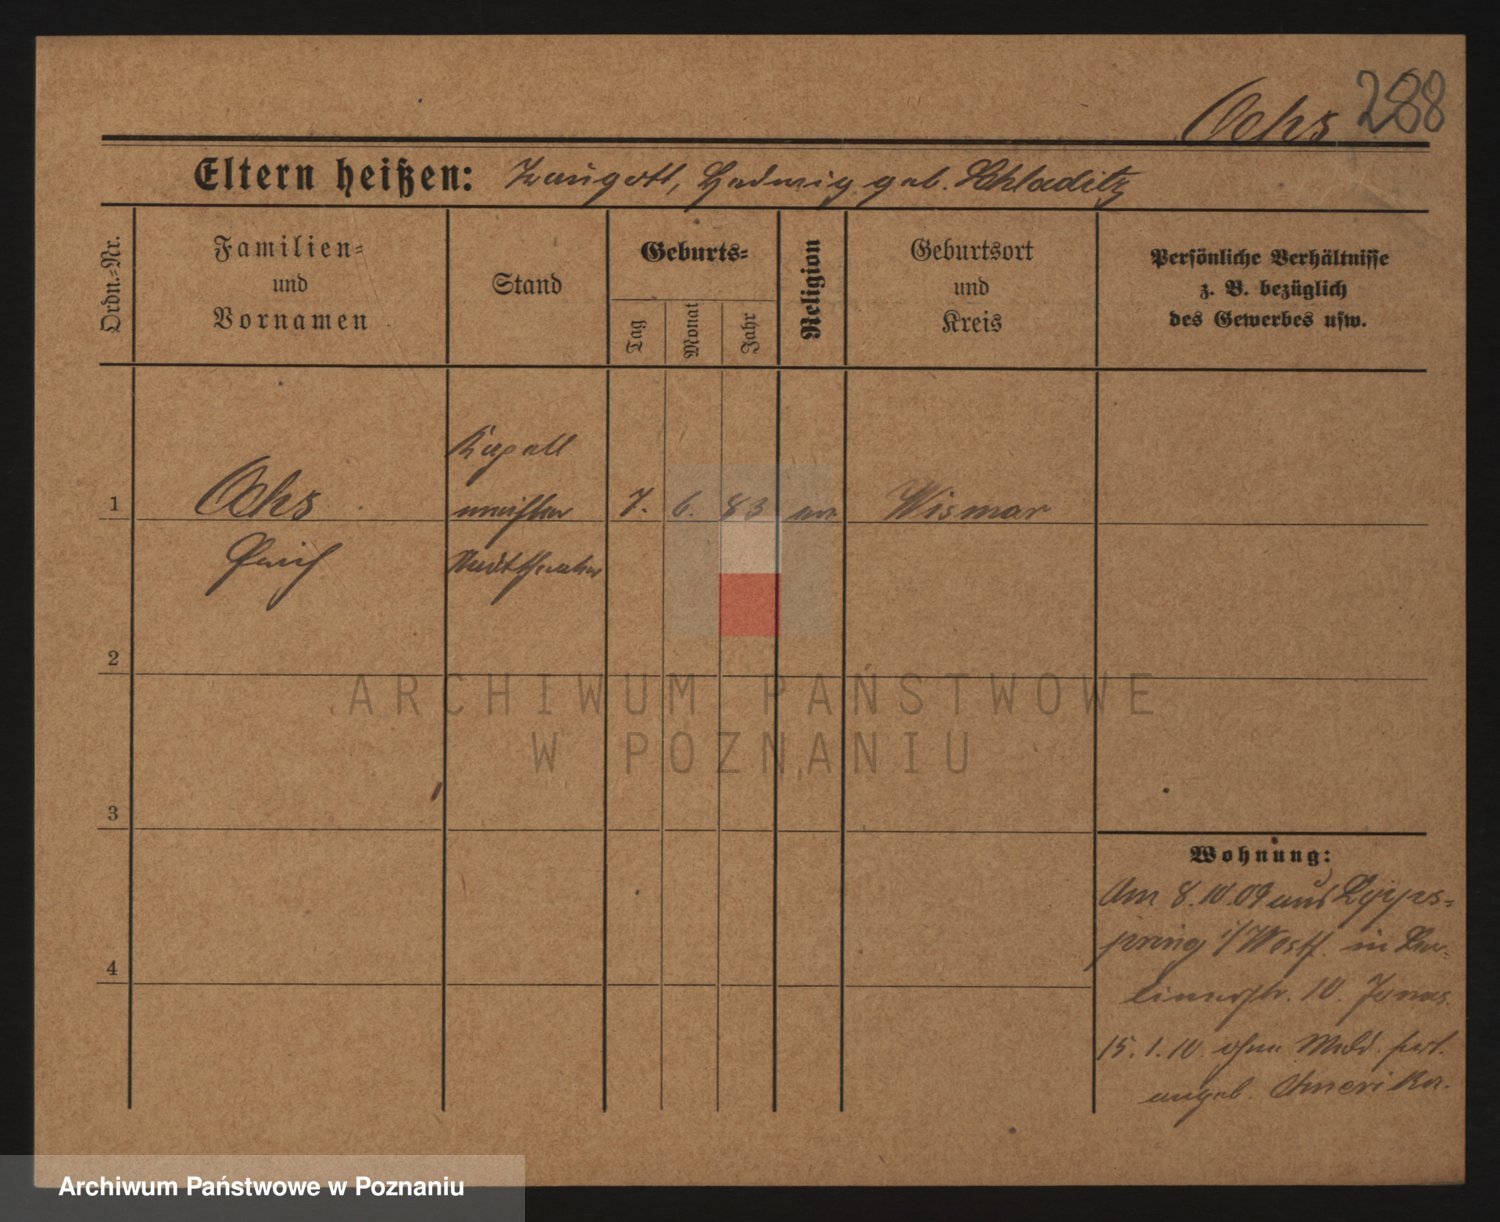 Ochs 288
Eltern heißen: Traugott, Hedwig geb. Schladitz
Ordn.=Nr.
Familien=
und
Vornamen
Stand
Geburts=
Tag
Monat
Jahr
Religion
Geburtsort
und
Kreis
Persönliche Verhältnisse
z. B. bezüglich
des Gewerbes usw.
Kapell
1 Ochs meister 7. 6. 83 ev Wismar
Erich Stadttheater
2
ARCHIWUM PAŃSTWOWE
W POZNANIU
3
Wohnung:
Am 8.10.09 aus Lipps=
pring i/Westf. in Ber=
linerstr. 10.
4
15.1.10 ohne Meld. fort.
angeb. Amerika.
Archiwum Państwowe w Poznaniu